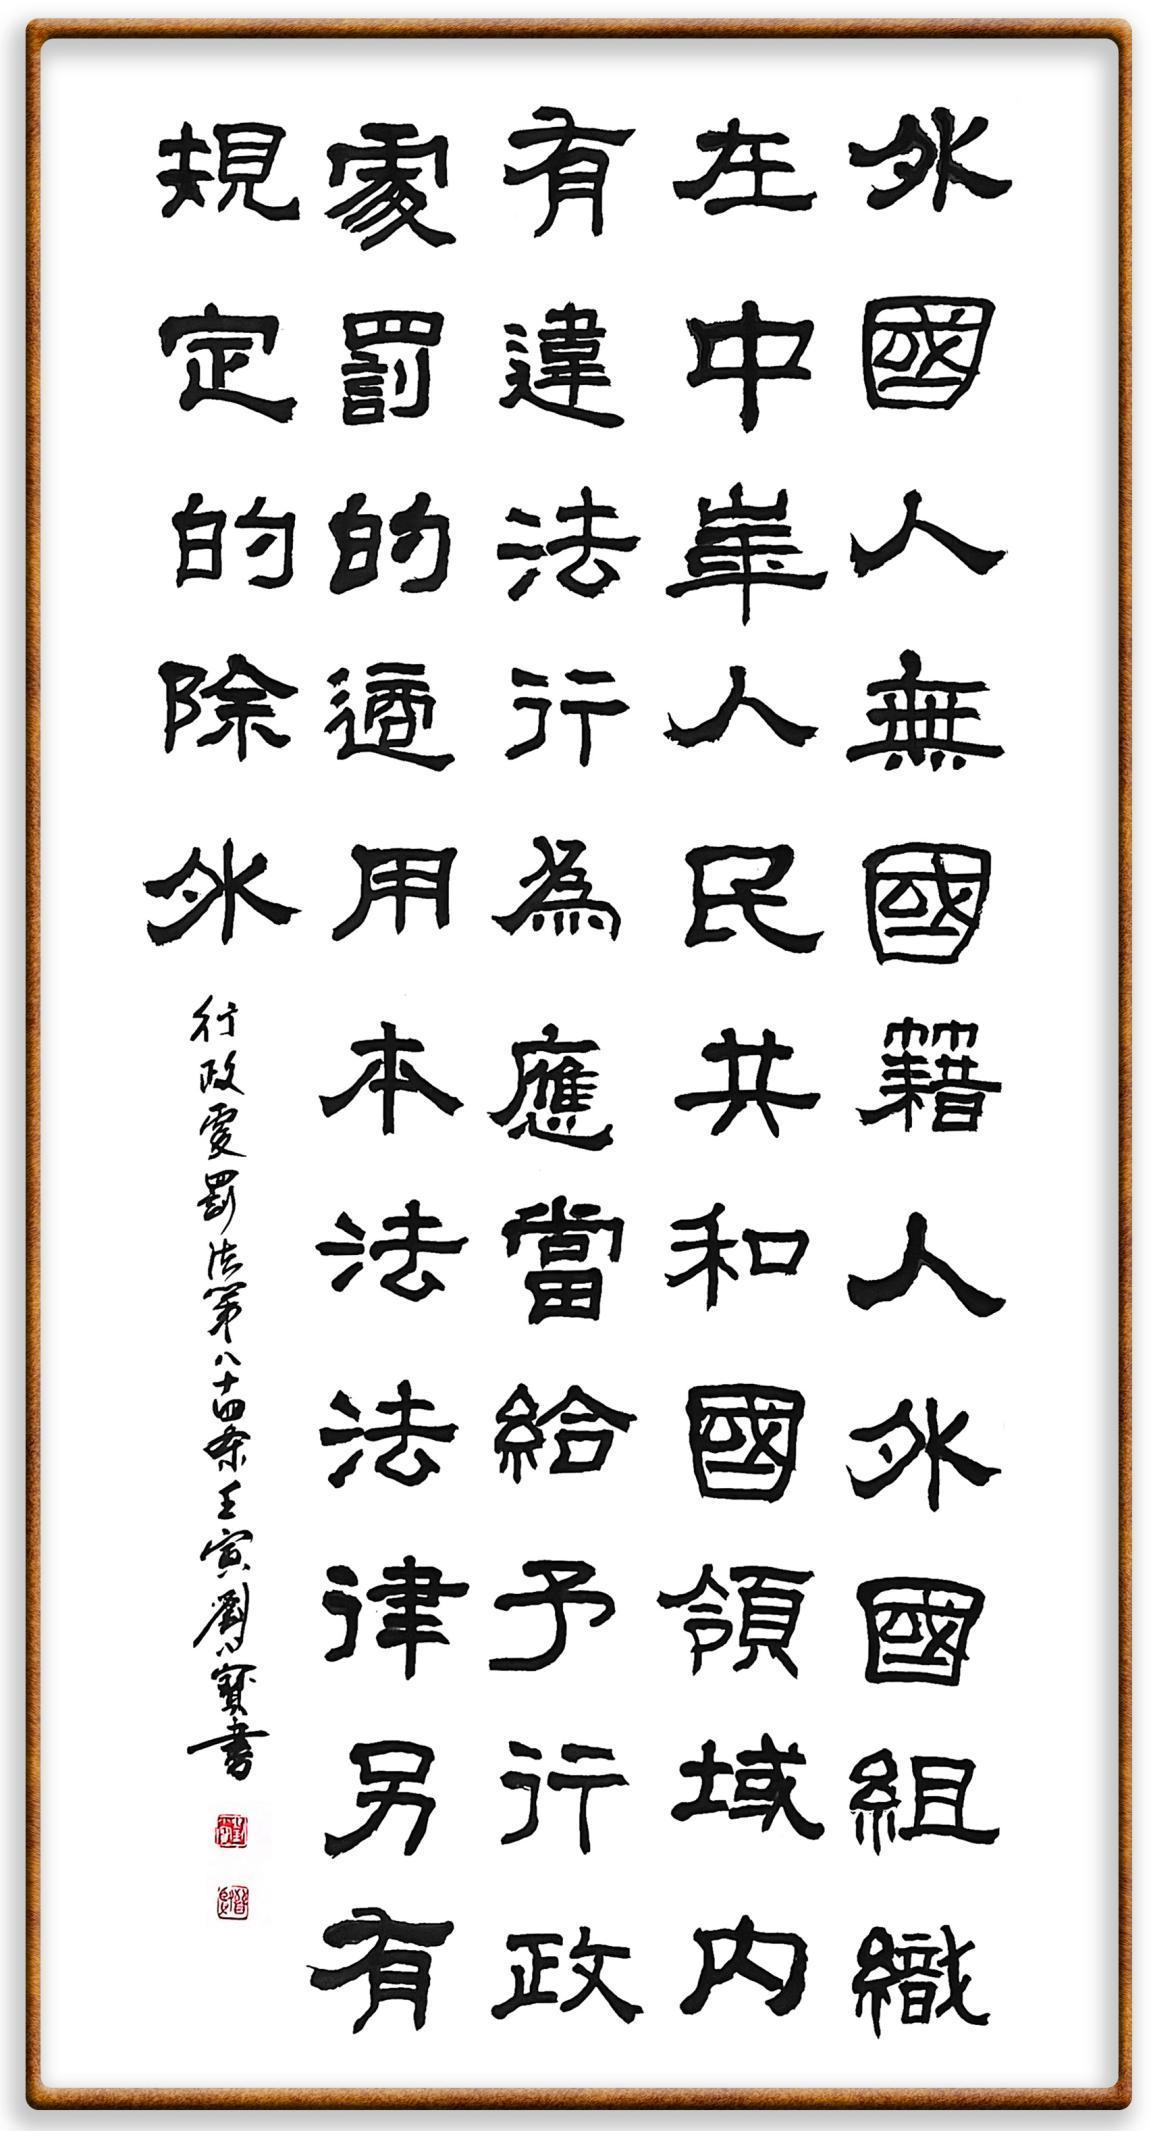 外國人無國籍人外國組織
在中華人民共和國領域內
有違法行為應當給予行政
處罰的適用本法法律另有
規定的除外
行政處罰法第八十四条壬寅劉小寶書